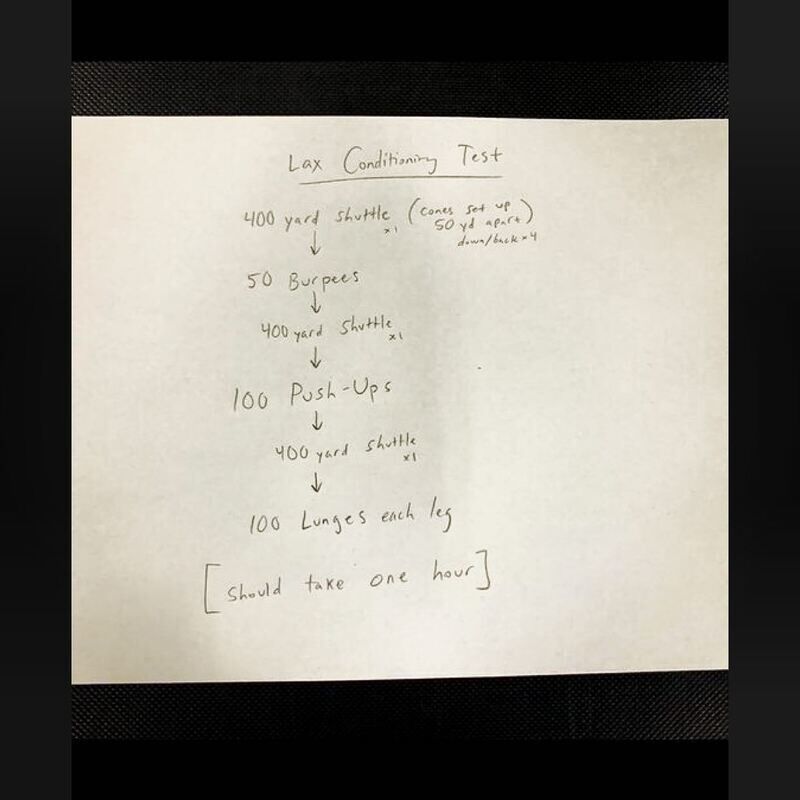 Lax Conditioning Test
400 yard shuttle x1 (cones set up
50 yd apart)
down/back x4
↓
50 Burpees
↓
400 yard shuttle x1
↓
100 Push-Ups
↓
400 yard shuttle x1
↓
100 Lunges each leg
[should take one hour]